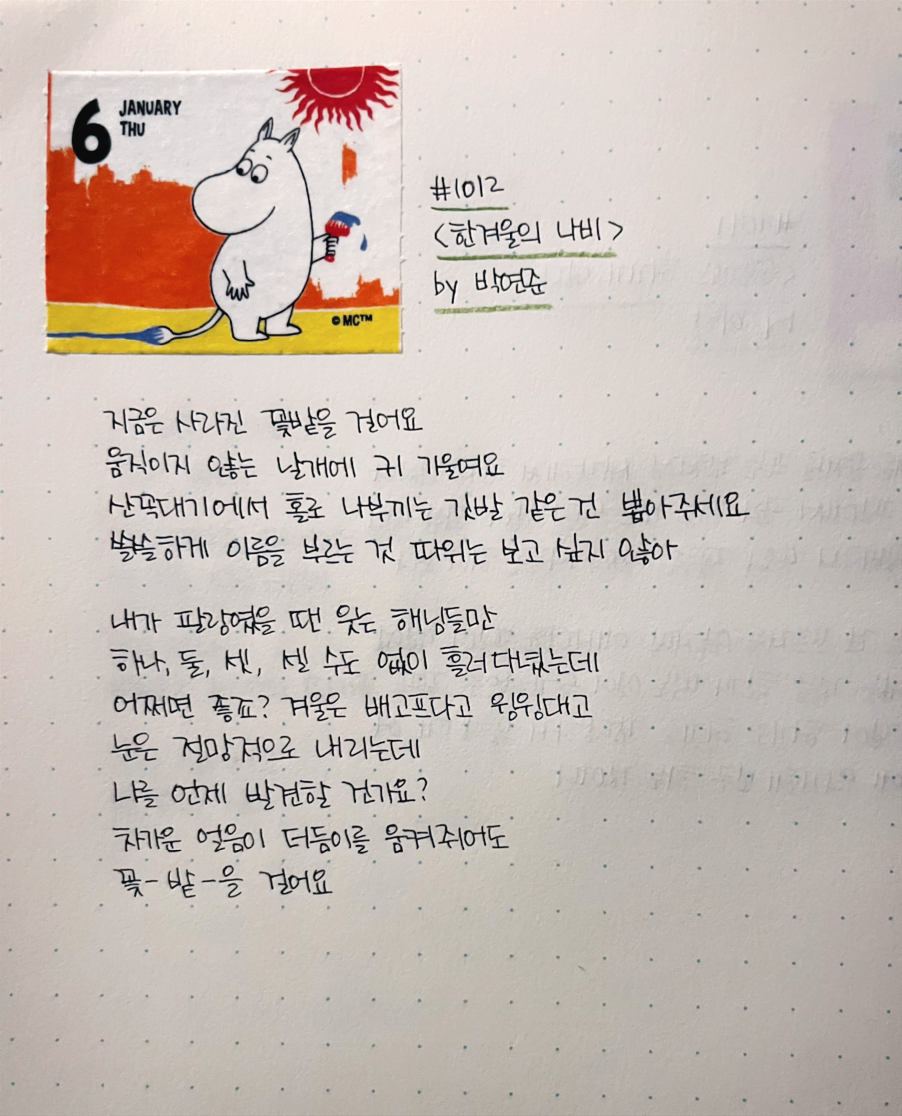 6
JANUARY
THU
© MC™
#1012
<한겨울의 나비>
by 박연준
지금은 사라진 꽃밭을 걸어요
움직이지 않는 날개에 귀 기울여요
산꼭대기에서 홀로 나부끼는 깃발 같은 건 뽑아주세요
쓸쓸하게 이름을 부르는 것 따위는 보고 싶지 않아
내가 팔랑였을 땐 웃는 해님들만
하나, 둘, 셋, 셀 수도 없이 흘러댕겼는데
어쩌면 좋죠? 겨울은 배고프다고 윙윙대고
눈은 절망적으로 내리는데
나를 언제 발견할 건가요?
차가운 얼음이 더듬이를 움켜쥐어도
꽃-밭-을 걸어요